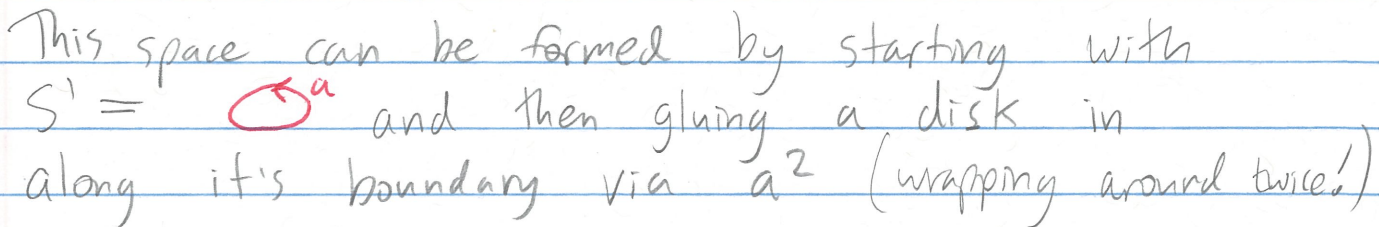 This space can be formed by starting with
S¹ = a and then gluing a disk in
along it's boundary via a² (wrapping around twice!)